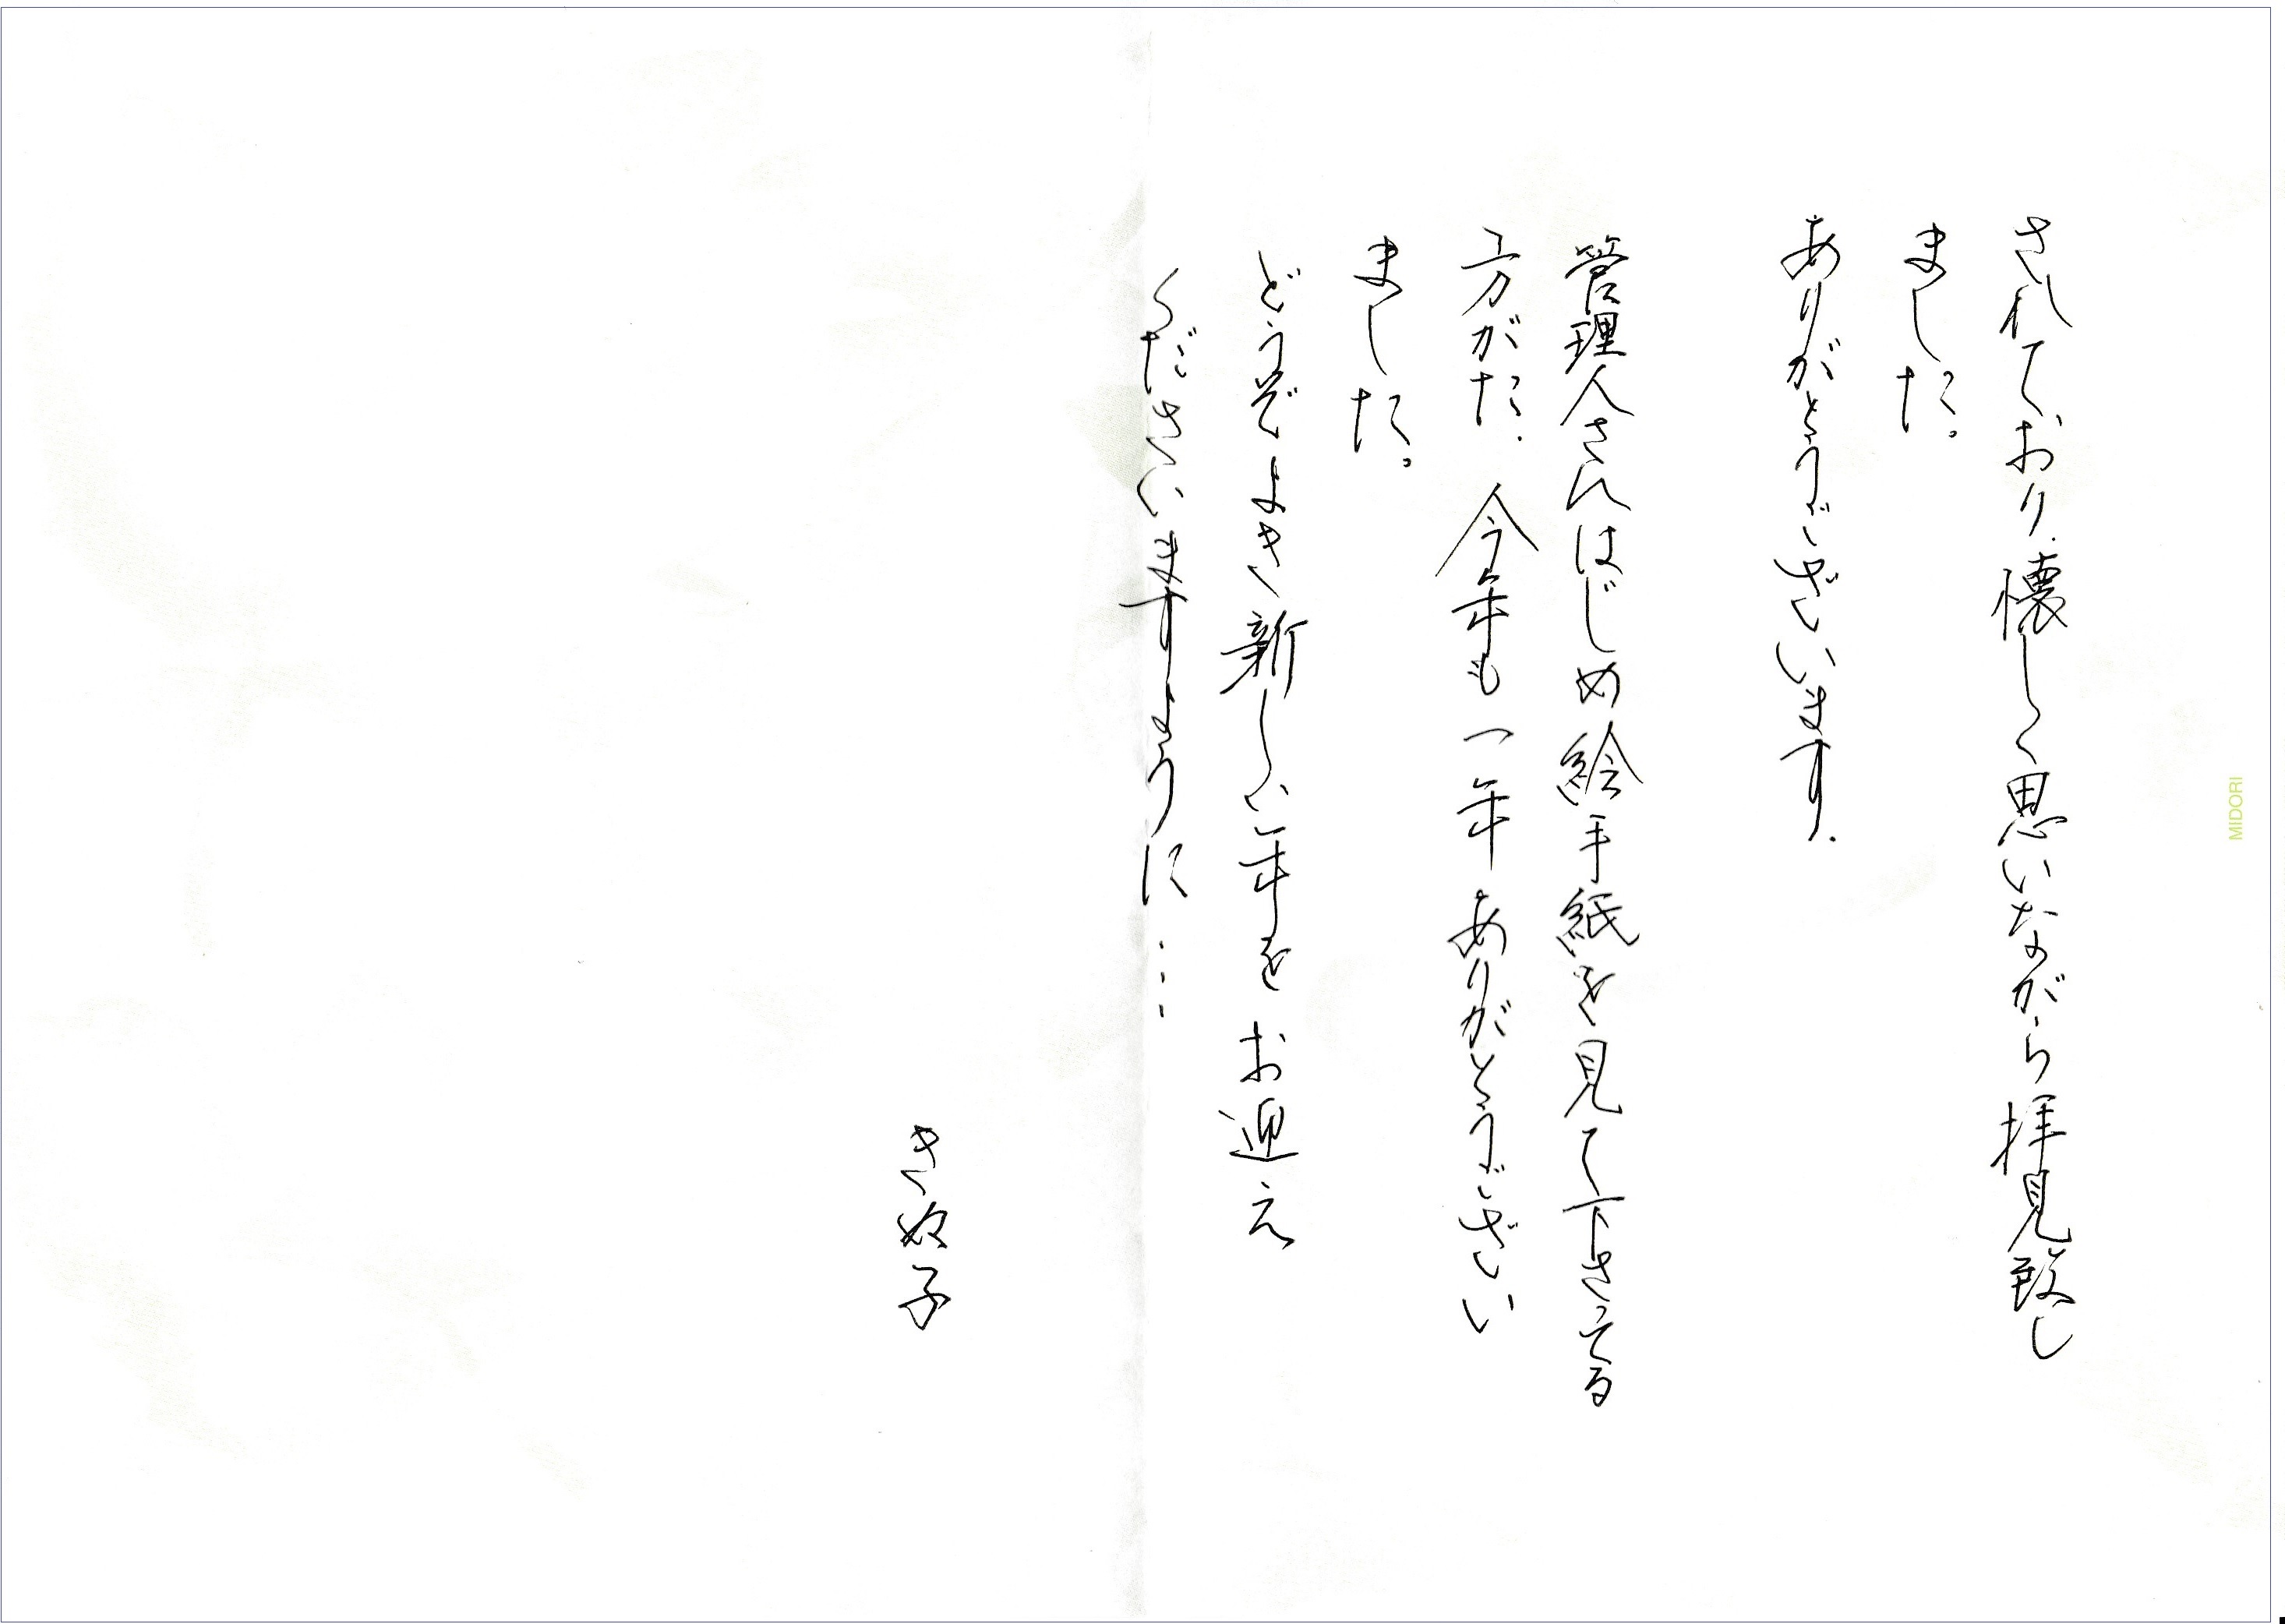 されており、懐しく思いながら拝見致し
ました。
ありがとうございます.
管理人さんはじめ絵手紙を見て下さってる
方がた. 今年も一年ありがとうござい
ました。
どうぞよき新しい年をお迎え
くださいますように…
きぬ子
MIDORI